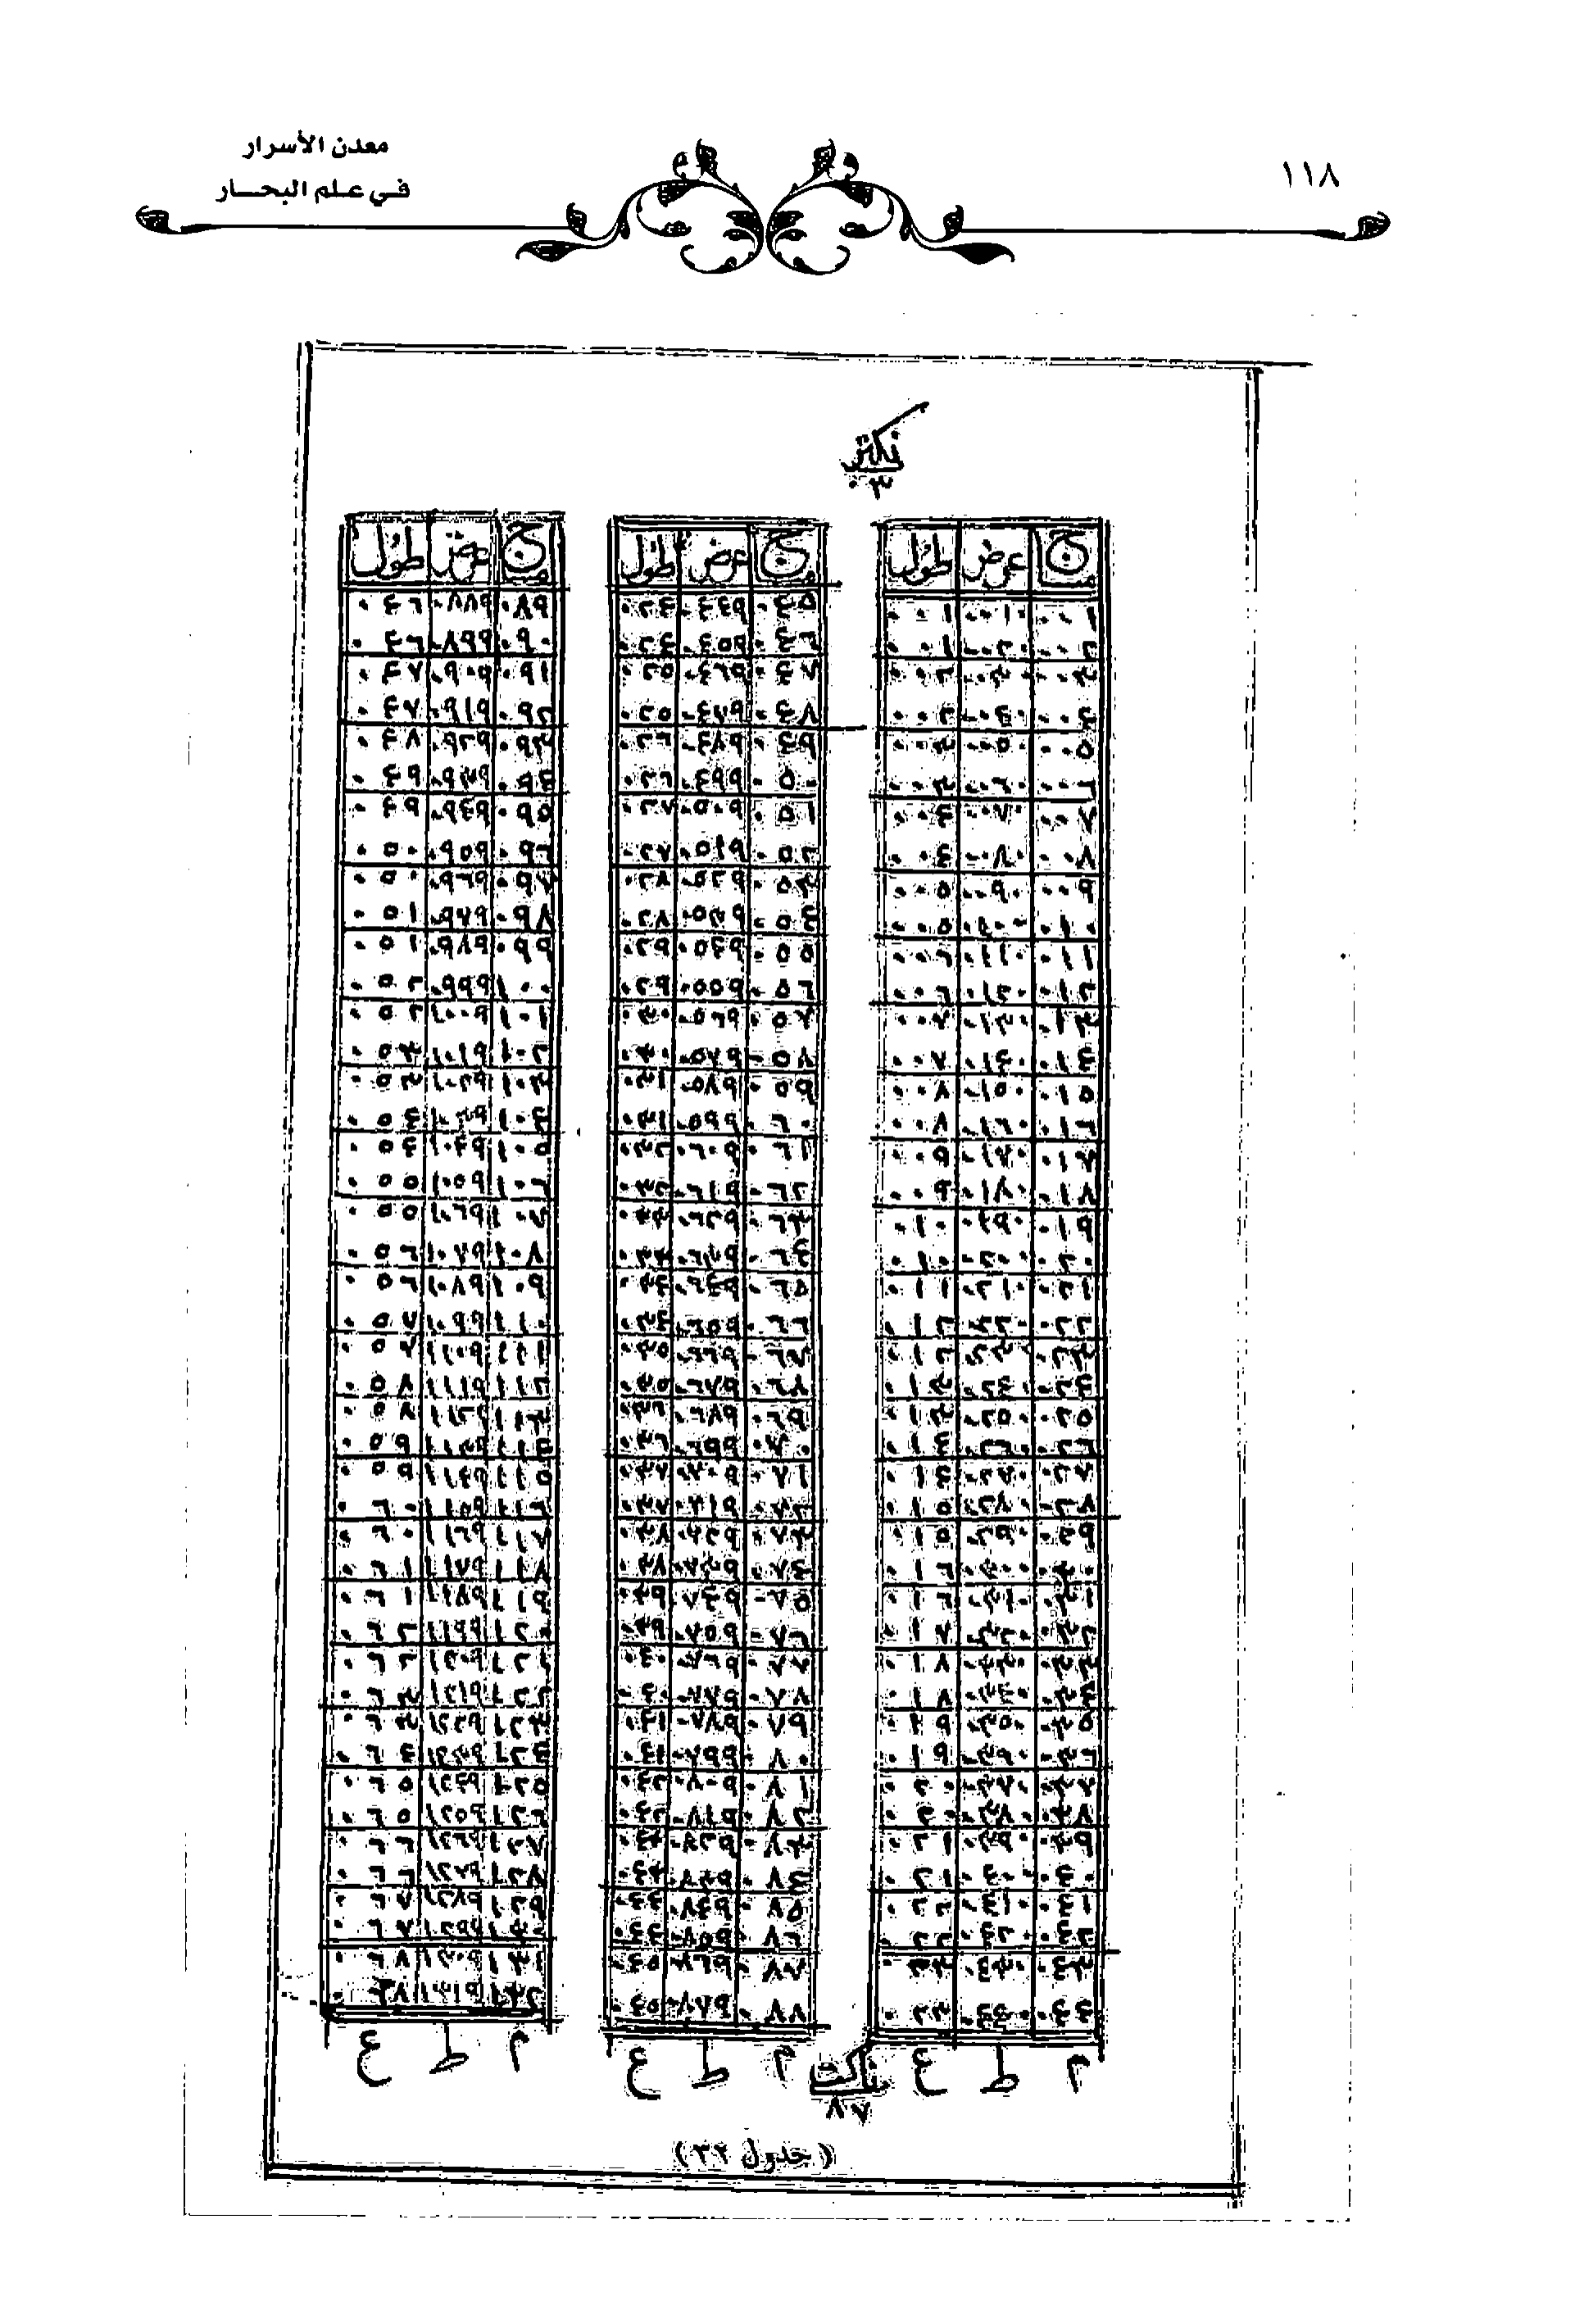 ١١٨
معدن الأسرار
في علم البحار
نكتز
٠٣
ج عرض طول
٠٠١ ٠٠١٠ ٠٠١
٠٠٢ ٠٠٢٠ ٠٠١
٠٠٣ ٠٠٣٠ ٠٠٢
٠٠٤ ٠٠٤٠ ٠٠٢
٠٠٥ ٠٠٥٠ ٠٠٣
٠٠٦ ٠٠٦٠ ٠٠٣
٠٠٧ ٠٠٧٠ ٠٠٤
٠٠٨ ٠٠٨٠ ٠٠٤
٠٠٩ ٠٠٩٠ ٠٠٥
٠١٠ ٠١٠٠ ٠٠٥
٠١١ ٠١١٠ ٠٠٦
٠١٢ ٠١٢٠ ٠٠٦
٠١٣ ٠١٣٠ ٠٠٧
٠١٤ ٠١٤٠ ٠٠٧
٠١٥ ٠١٥٠ ٠٠٨
٠١٦ ٠١٦٠ ٠٠٨
٠١٧ ٠١٧٠ ٠٠٩
٠١٨ ٠١٨٠ ٠٠٩
٠١٩ ٠١٩٠ ٠١٠
٠٢٠ ٠٢٠٠ ٠١٠
٠٢١ ٠٢١٠ ٠١١
٠٢٢ ٠٢٢٠ ٠١٢
٠٢٣ ٠٢٣٠ ٠١٢
٠٢٤ ٠٢٤٠ ٠١٣
٠٢٥ ٠٢٥٠ ٠١٣
٠٢٦ ٠٢٦٠ ٠١٤
٠٢٧ ٠٢٧٠ ٠١٤
٠٢٨ ٠٢٨٠ ٠١٥
٠٢٩ ٠٢٩٠ ٠١٥
٠٣٠ ٠٣٠٠ ٠١٦
٠٣١ ٠٣١٠ ٠١٦
٠٣٢ ٠٣٢٠ ٠١٧
٠٣٣ ٠٣٣٠ ٠١٨
٠٣٤ ٠٣٤٠ ٠١٨
٠٣٥ ٠٣٥٠ ٠١٩
٠٣٦ ٠٣٦٠ ٠١٩
٠٣٧ ٠٣٧٠ ٠٢٠
٠٣٨ ٠٣٨٠ ٠٢٠
٠٣٩ ٠٣٩٠ ٠٢١
٠٤٠ ٠٤٠٠ ٠٢١
٠٤١ ٠٤١٠ ٠٢٢
٠٤٢ ٠٤٢٠ ٠٢٢
٠٤٣ ٠٤٣٠ ٠٢٣
٠٤٤ ٠٤٤٠ ٠٢٣
م ط ع
ج عرض طول
٠٤٥ ٠٤٤٩ ٠٢٤
٠٤٦ ٠٤٥٩ ٠٢٤
٠٤٧ ٠٤٦٩ ٠٢٥
٠٤٨ ٠٤٧٩ ٠٢٥
٠٤٩ ٠٤٨٩ ٠٢٦
٠٥٠ ٠٤٩٩ ٠٢٦
٠٥١ ٠٥٠٩ ٠٢٧
٠٥٢ ٠٥١٩ ٠٢٧
٠٥٣ ٠٥٢٩ ٠٢٨
٠٥٤ ٠٥٣٩ ٠٢٨
٠٥٥ ٠٥٤٩ ٠٢٩
٠٥٦ ٠٥٥٩ ٠٢٩
٠٥٧ ٠٥٦٩ ٠٣٠
٠٥٨ ٠٥٧٩ ٠٣٠
٠٥٩ ٠٥٨٩ ٠٣١
٠٦٠ ٠٥٩٩ ٠٣١
٠٦١ ٠٦٠٩ ٠٣٢
٠٦٢ ٠٦١٩ ٠٣٢
٠٦٣ ٠٦٢٩ ٠٣٣
٠٦٤ ٠٦٣٩ ٠٣٣
٠٦٥ ٠٦٤٩ ٠٣٤
٠٦٦ ٠٦٥٩ ٠٣٤
٠٦٧ ٠٦٦٩ ٠٣٥
٠٦٨ ٠٦٧٩ ٠٣٥
٠٦٩ ٠٦٨٩ ٠٣٦
٠٧٠ ٠٦٩٩ ٠٣٦
٠٧١ ٠٧٠٩ ٠٣٧
٠٧٢ ٠٧١٩ ٠٣٧
٠٧٣ ٠٧٢٩ ٠٣٨
٠٧٤ ٠٧٣٩ ٠٣٨
٠٧٥ ٠٧٤٩ ٠٣٩
٠٧٦ ٠٧٥٩ ٠٣٩
٠٧٧ ٠٧٦٩ ٠٤٠
٠٧٨ ٠٧٧٩ ٠٤٠
٠٧٩ ٠٧٨٩ ٠٤١
٠٨٠ ٠٧٩٩ ٠٤١
٠٨١ ٠٨٠٩ ٠٤٢
٠٨٢ ٠٨١٩ ٠٤٢
٠٨٣ ٠٨٢٩ ٠٤٣
٠٨٤ ٠٨٣٩ ٠٤٣
٠٨٥ ٠٨٤٩ ٠٤٤
٠٨٦ ٠٨٥٩ ٠٤٤
٠٨٧ ٠٨٦٩ ٠٤٥
٠٨٨ ٠٨٧٩ ٠٤٥
م ط ع
ج عرض طول
٠٨٩ ٠٨٨٩ ٠٤٦
٠٩٠ ٠٨٩٩ ٠٤٦
٠٩١ ٠٩٠٩ ٠٤٧
٠٩٢ ٠٩١٩ ٠٤٧
٠٩٣ ٠٩٢٩ ٠٤٨
٠٩٤ ٠٩٣٩ ٠٤٩
٠٩٥ ٠٩٤٩ ٠٤٩
٠٩٦ ٠٩٥٩ ٠٥٠
٠٩٧ ٠٩٦٩ ٠٥٠
٠٩٨ ٠٩٧٩ ٠٥١
٠٩٩ ٠٩٨٩ ٠٥١
١٠٠ ٠٩٩٩ ٠٥٢
١٠١ ١٠٠٩ ٠٥٢
١٠٢ ١٠١٩ ٠٥٣
١٠٣ ١٠٢٩ ٠٥٣
١٠٤ ١٠٣٩ ٠٥٤
١٠٥ ١٠٤٩ ٠٥٤
١٠٦ ١٠٥٩ ٠٥٥
١٠٧ ١٠٦٩ ٠٥٥
١٠٨ ١٠٧٩ ٠٥٦
١٠٩ ١٠٨٩ ٠٥٦
١١٠ ١٠٩٩ ٠٥٧
١١١ ١١٠٩ ٠٥٧
١١٢ ١١١٩ ٠٥٨
١١٣ ١١٢٩ ٠٥٨
١١٤ ١١٣٩ ٠٥٩
١١٥ ١١٤٩ ٠٥٩
١١٦ ١١٥٩ ٠٦٠
١١٧ ١١٦٩ ٠٦٠
١١٨ ١١٧٩ ٠٦١
١١٩ ١١٨٩ ٠٦١
١٢٠ ١١٩٩ ٠٦٢
١٢١ ١٢٠٩ ٠٦٢
١٢٢ ١٢١٩ ٠٦٣
١٢٣ ١٢٢٩ ٠٦٣
١٢٤ ١٢٣٩ ٠٦٤
١٢٥ ١٢٤٩ ٠٦٥
١٢٦ ١٢٥٩ ٠٦٥
١٢٧ ١٢٦٩ ٠٦٦
١٢٨ ١٢٧٩ ٠٦٦
١٢٩ ١٢٨٩ ٠٦٧
١٣٠ ١٢٩٩ ٠٦٧
١٣١ ١٣٠٩ ٠٦٨
١٣٢ ١٣١٩ ٠٦٨
م ط ع
ناكت
٨٧
(جدول ٣٢)